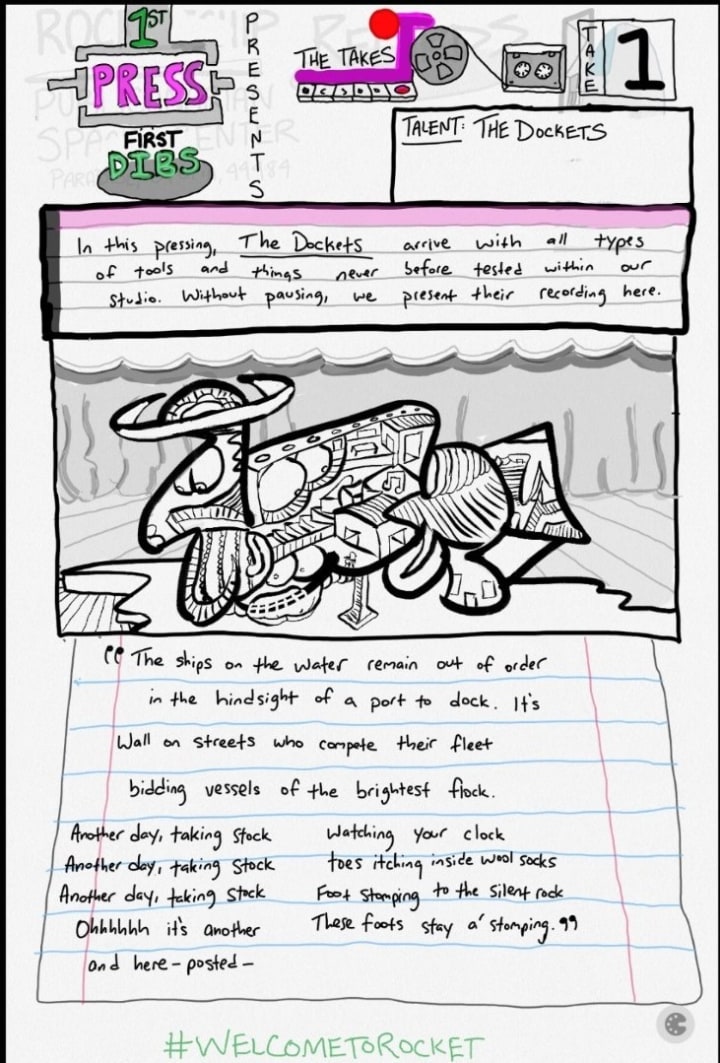 1ST
PRESS
FIRST
DIBS
PRESENTS
THE TAKES
TAKE
1
TALENT: THE DOCKETS
In this pressing, The Dockets arrive with all types
of tools and things never before tested within our
studio. Without pausing, we present their recording here.
“The ships on the water remain out of order
in the hindsight of a port to dock. It's
Wall on streets who compete their fleet
bidding vessels of the brightest flock.
Another day, taking stock Watching your clock
Another day, taking stock toes itching inside wool socks
Another day, taking stock Foot stomping to the silent rock
Ohhhhhh it's another These foots stay a' stomping.”
and here-posted-
#WELCOMETOROCKET